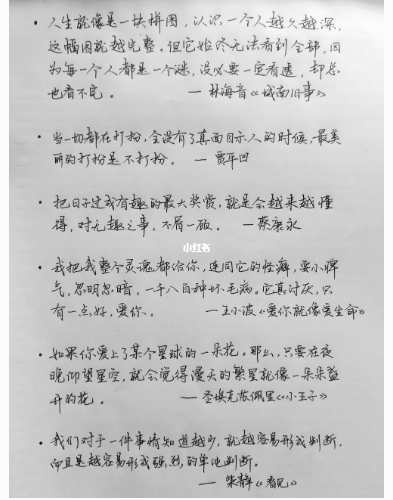 人生就像是一块拼图，认识一个人越久越深，
这幅图就越完整。但它始终无法看到全部，因
为每一个人都是一个谜，没必要一定看透，却总
也看不完。 —林海音《城南旧事》
当一切都在打扮，全没有了真面目示人的时候，最美
丽的打扮是不打扮。 —贾平凹
把日子过成有趣的最大奖赏，就是会越来越懂
得，对无趣之事，不屑一顾。 —蔡康永
小红书
我把我整个灵魂都给你，连同它的怪癖，耍小脾
气，忽明忽暗，一千八百种坏毛病。它真讨厌，只
有一点好，爱你。 —王小波《爱你就像爱生命》
如果你爱上了某个星球的一朵花。那么，只要在夜
晚仰望星空，就会觉得漫天的繁星就像一朵朵盛
开的花。 —圣埃克苏佩里《小王子》
我们对于一件事情知道越少，就越容易形成判断，
而且是越容易形成强烈的单他判断。
—柴静《看见》